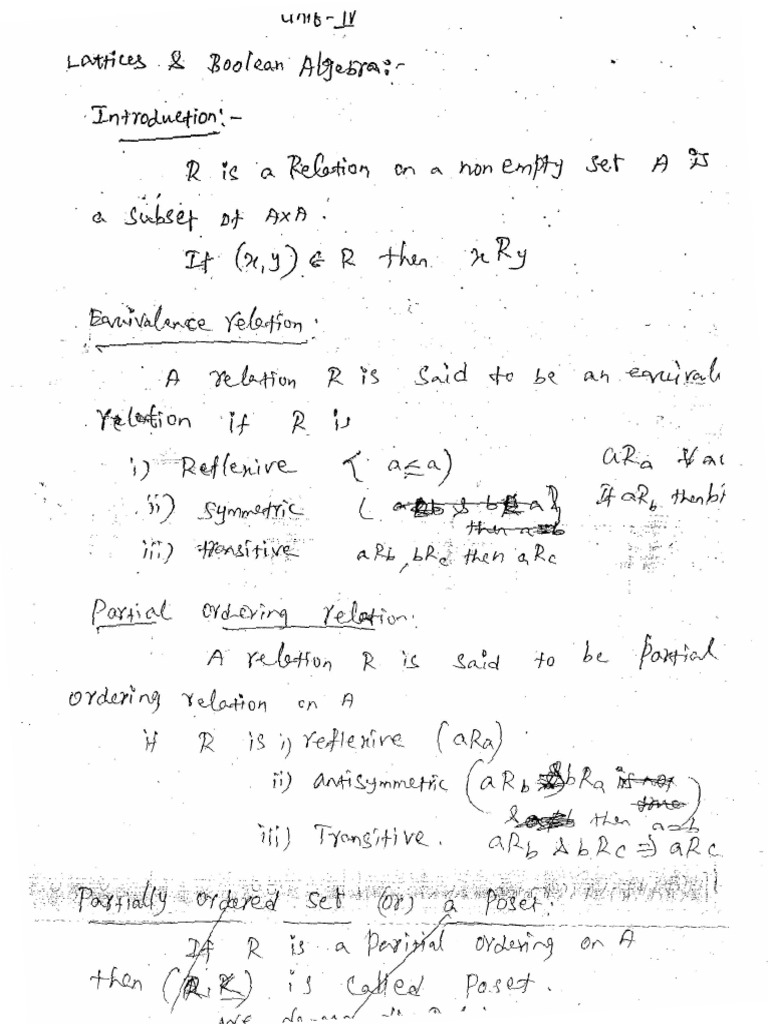 Unit-IV
Lattices & Boolean Algebra:-
Introduction:-
R is a Relation on a non empty set A is
a subset of A×A.
If (x,y) ∈ R then xRy
Equivalence relation:
A relation R is said to be an equival
relation if R is
i) Reflexive ( a≤a) aRa ∀ a∈
ii) Symmetric ( If aRb then b
then a=b
iii) transitive aRb, bRc then aRc
Partial ordering relation:
A relation R is said to be partial
ordering relation on A
if R is i) reflexive (aRa)
ii) antisymmetric (aRb & bRa
then a=b)
iii) Transitive. aRb & bRc ⇒ aRc
Partially ordered set (or) a Poset:
If R is a Paritial ordering on A
then is called Poset.